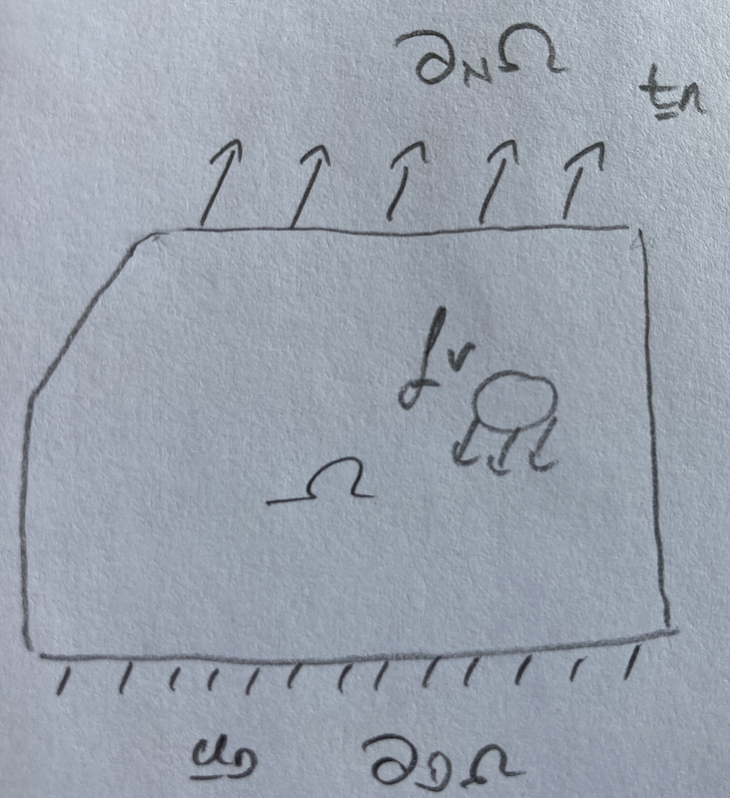 ∂NΩ
tn
fv
Ω
uD ∂DΩ